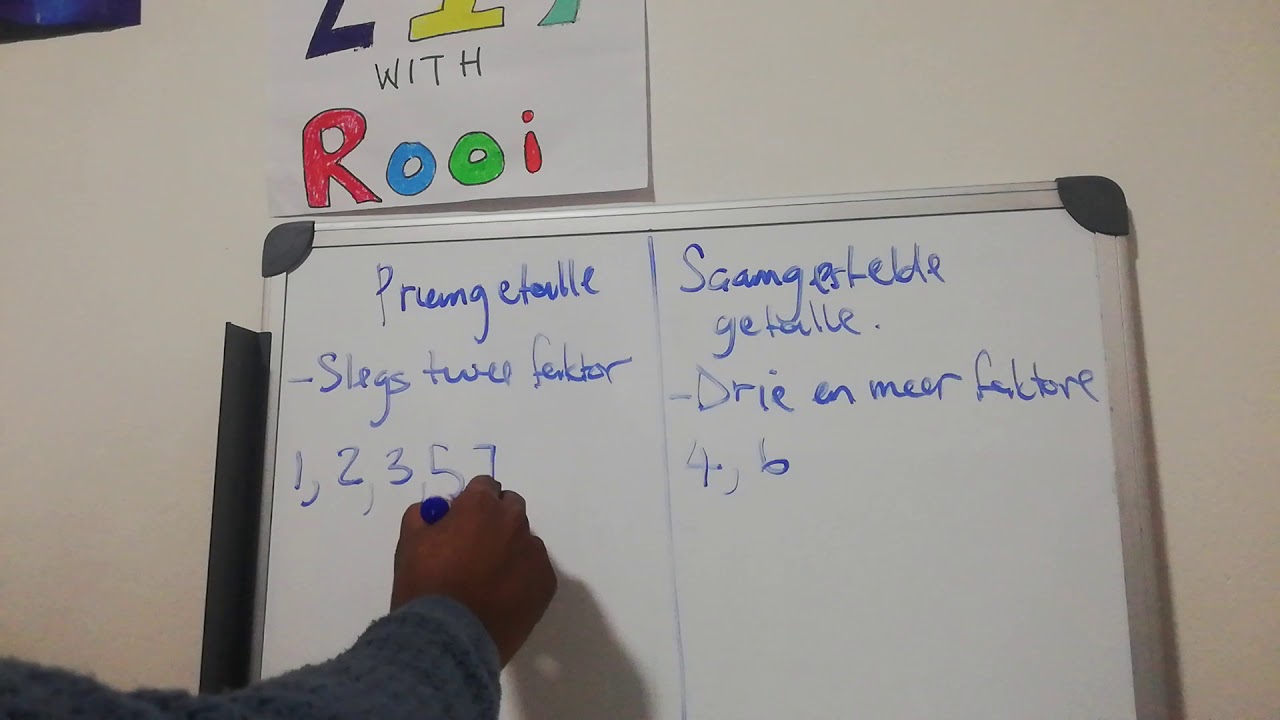 WITH
Rooi
Priemgetalle
Saamgestelde
getalle.
- Slegs twee faktor
- Drie en meer faktore
1, 2, 3, 5 7
4, 6